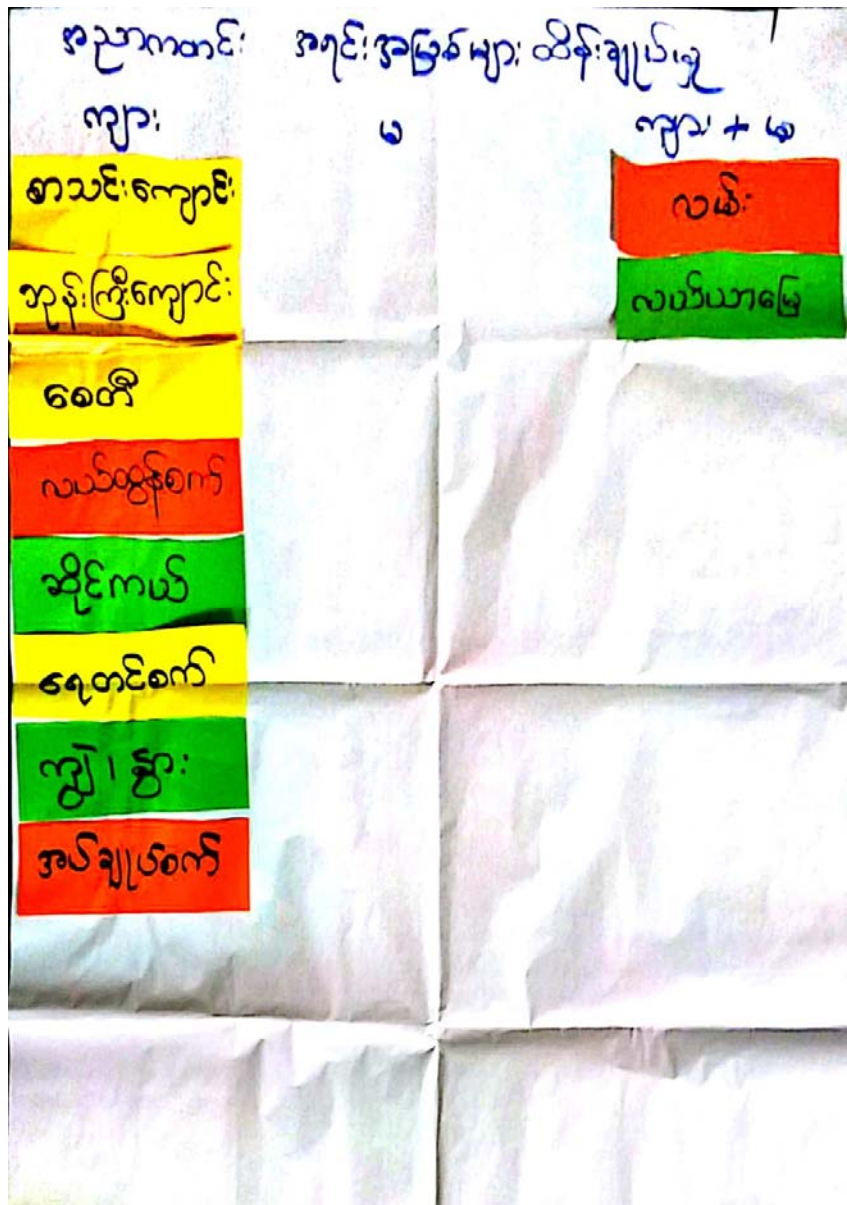 အညာကတင်း အရင်းအမြစ်များ ထိန်းချုပ်မှု
ကျား မ ကျား + မ
စာသင်းကျောင်း
ဘုန်းကြီးကျောင်း
စေတီ
လယ်ထွန်စက်
ဆိုင်ကယ်
ရေတင်စက်
ကျွဲ၊ နွား
အပ်ချုပ်စက်
လမ်း
လယ်ယာမြေ